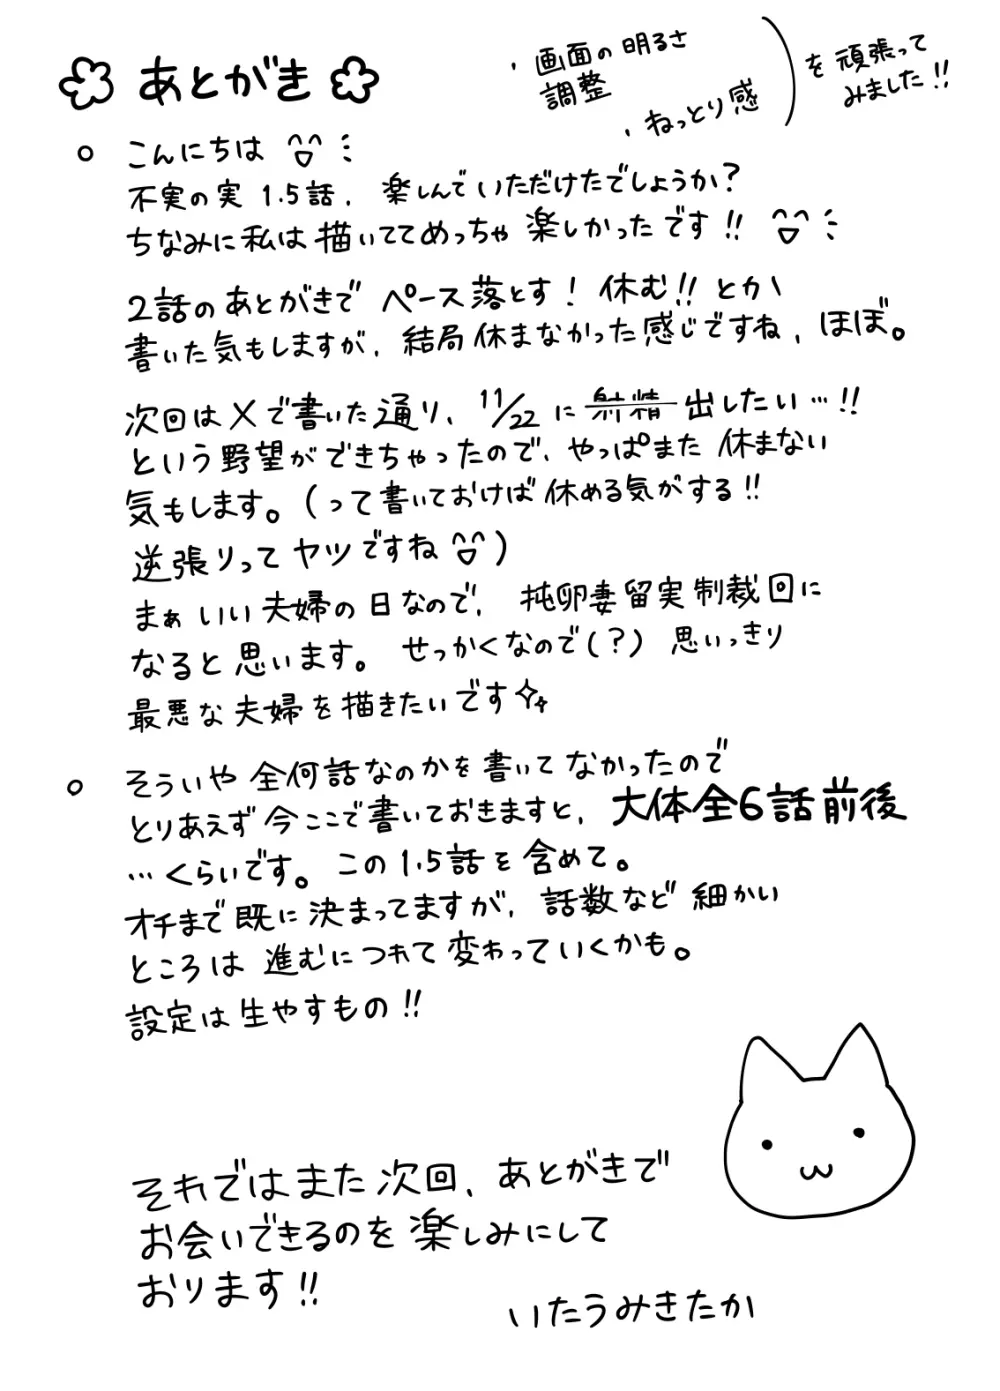 あとがき
・画面の明るさ
調整
・ねっとり感
を頑張って
みました!!
こんにちは
不実の実 1.5話、楽しんでいただけたでしょうか?
ちなみに私は描いててめっちゃ楽しかったです!!
2話のあとがきで ペース落とす! 休む!! とか
書いた気もしますが、結局休まなかった感じですね、ほぼ。
次回はXで書いた通り、11/22に射精出したい…!!
という野望ができちゃったので、やっぱまた休まない
気もします。(って書いておけば休める気がする!!
逆張りってヤツですね)
まぁいい夫婦の日なので、托卵妻留実制裁回に
なると思います。せっかくなので(?) 思いっきり
最悪な夫婦を描きたいです
そういや全何話なのかを書いてなかったので
とりあえず今ここで書いておきますと、大体全6話前後
…くらいです。この1.5話を含めて。
オチまで既に決まってますが、話数など細かい
ところは進むにつれて変わっていくかも。
設定は生やすもの!!
それではまた次回、あとがきで
お会いできるのを楽しみにして
おります!!
いたうみきたか